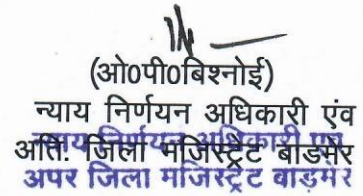 (ओ0पी0बिश्नोई)
न्याय निर्णयन अधिकारी एंव
अति. जिला मजिस्ट्रेट बाडमेर
न्याय निर्णयन अधिकारी एवं
अपर जिला मजिस्ट्रेट बाडमेर